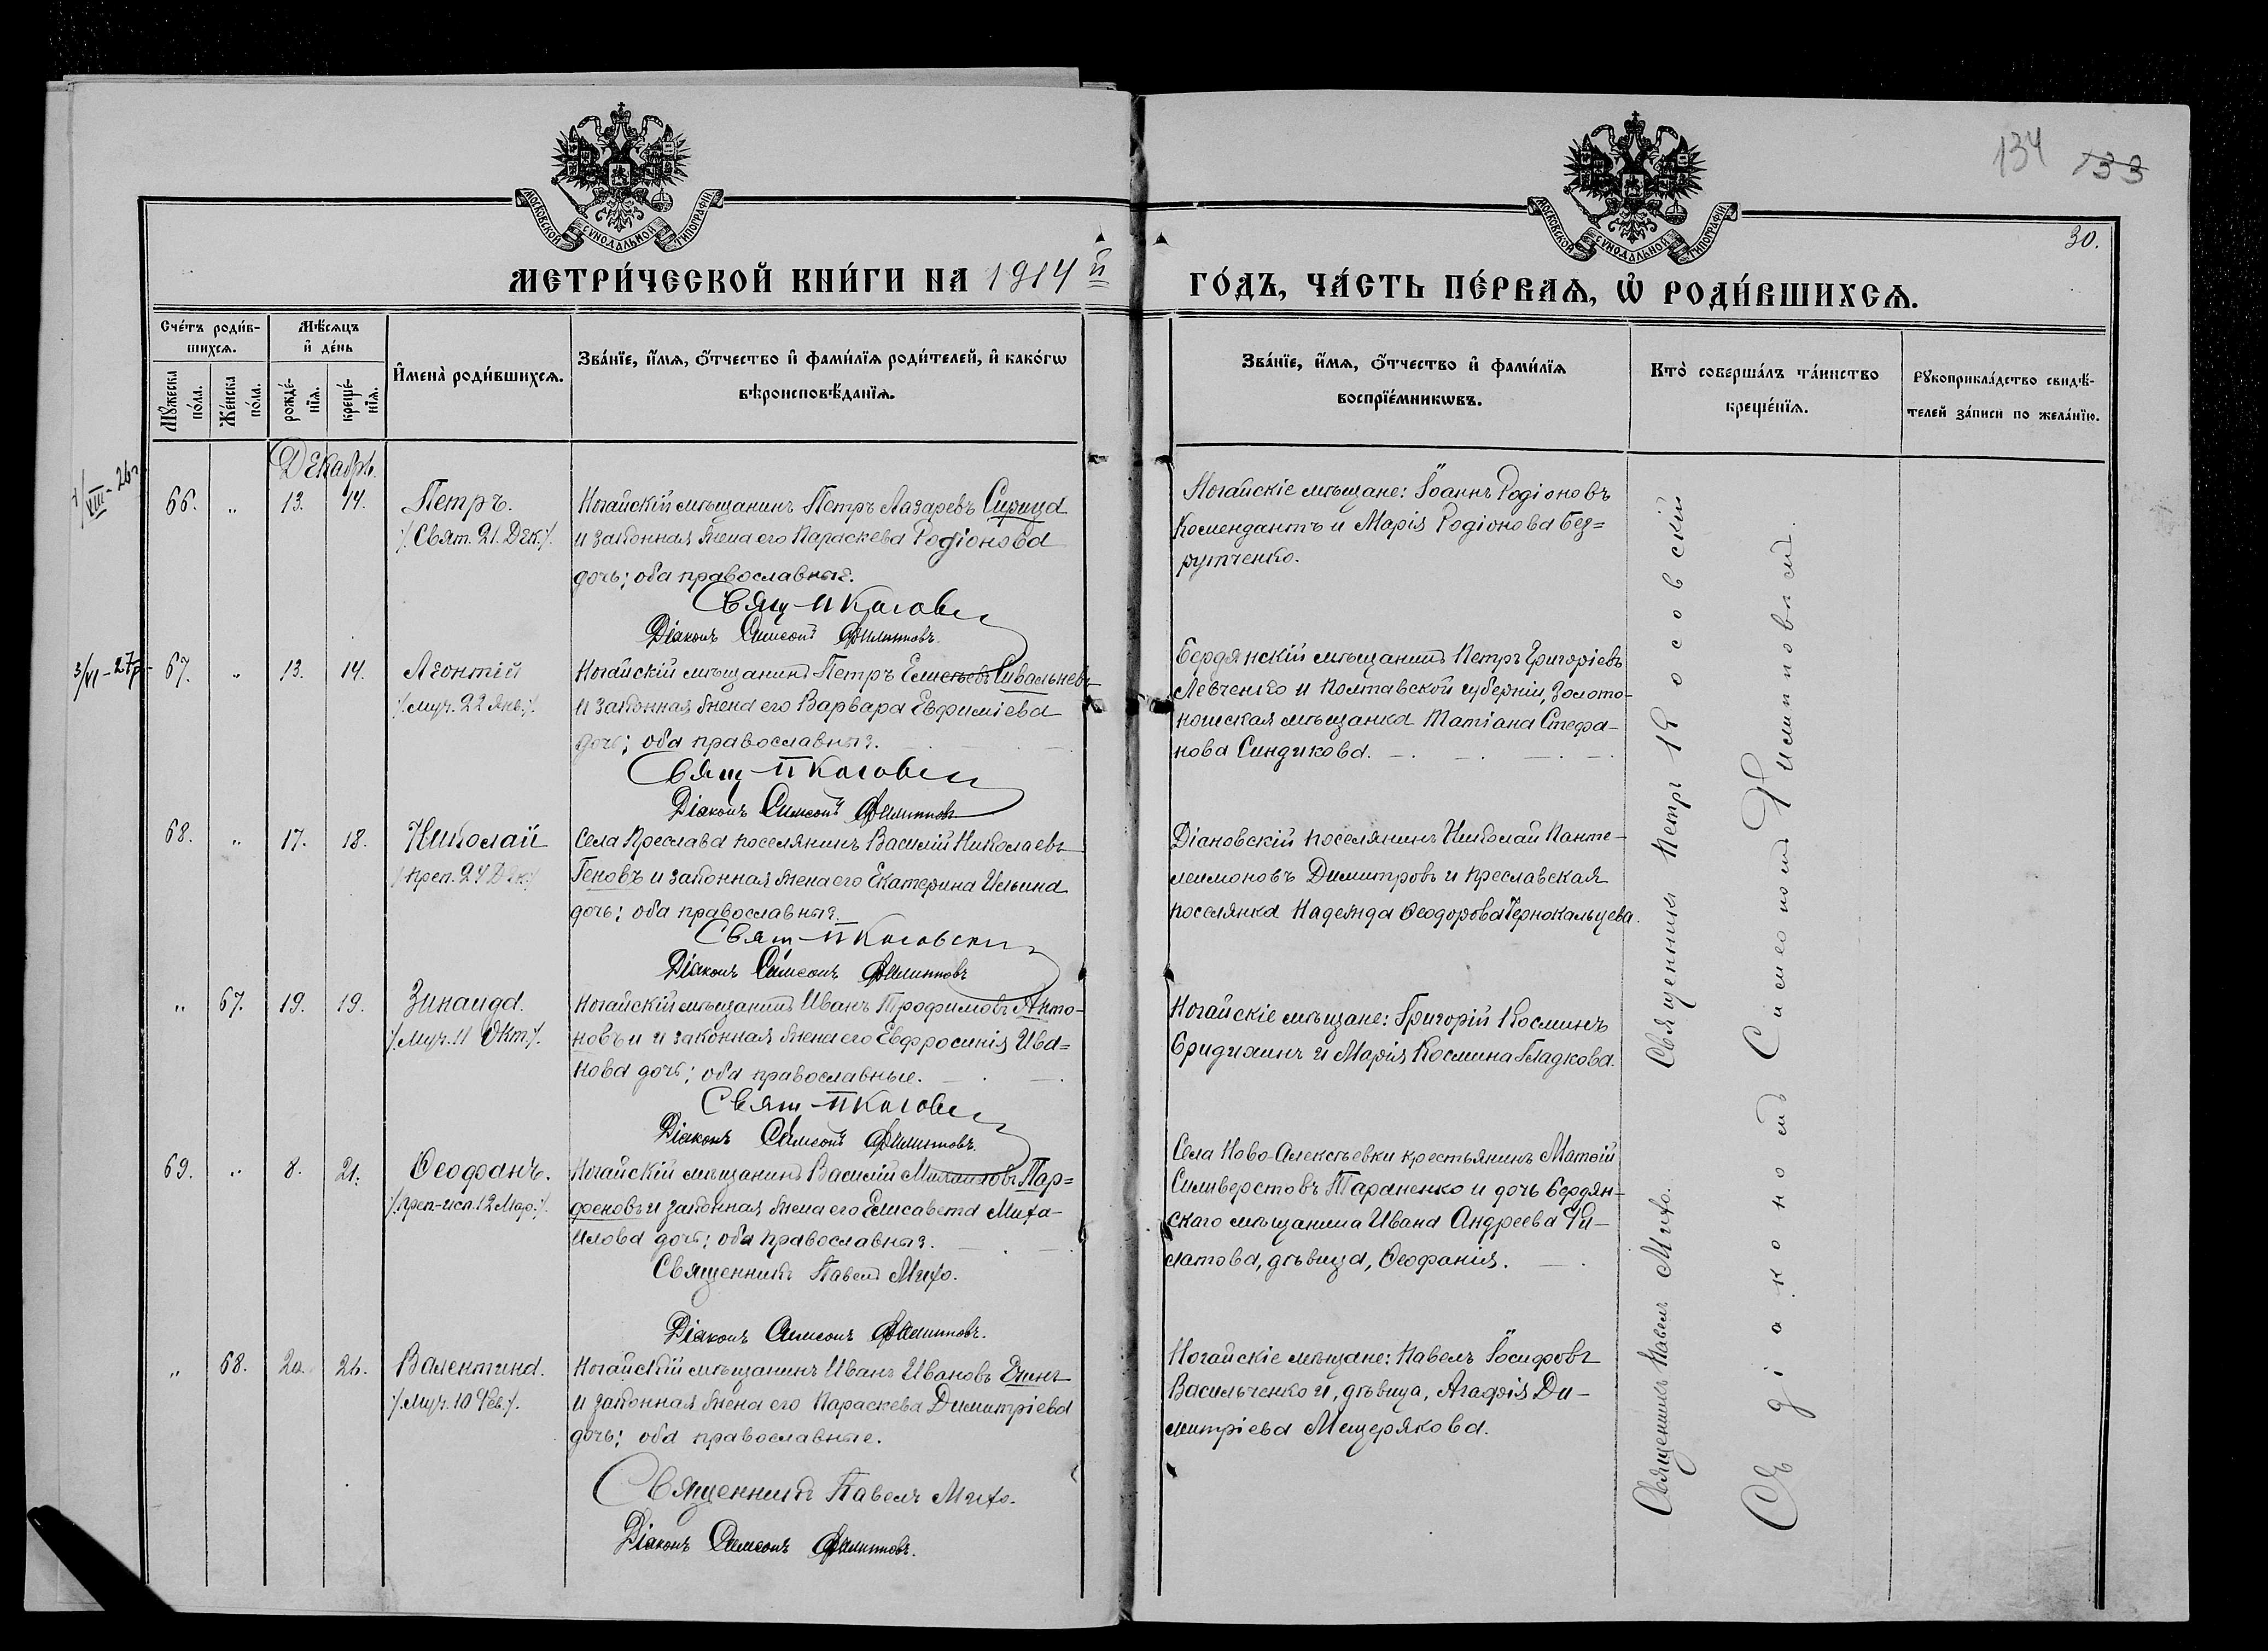 134 133
30.
МОСКОВСКОЙ СѴНОДАЛЬНОЙ ТИПОГРАФІИ
МОСКОВСКОЙ СѴНОДАЛЬНОЙ ТИПОГРАФІИ
МЕТРИ́ЧЕСКОЙ КНИ́ГИ НА 1914 й
ГО́ДЪ, ЧА́СТЬ ПЕ́РВАѦ, Ѡ҆ РОДИ́ВШИХСѦ.
Сче́тъ роди́в-
шихсѧ.
Мꙋжеска
по́ла.
Же́нска
по́ла.
Мѣ́сѧцъ
и҆ де́нь
рожде́-
нїѧ.
креще́-
нїѧ.
И҆мена̀ роди́вшихсѧ.
Зва́нїе, и҆́мѧ, ѻ҆́тчество и҆ фами́лїѧ роди́телей, и҆ како́гѡ
вѣроисповѣ́данїѧ.
Зва́нїе, и҆́мѧ, ѻ҆́тчество и҆ фами́лїѧ
воспрїе́мникѡвъ.
Кто̀ соверша́лъ та́инство
креще́нїѧ.
Рꙋкоприкла́дство свидѣ́-
телей за́писи по жела́нїю.
Декабрь.
VIII - 26 г
66. „ 13. 14. Петръ.
/. Свят. 21. Дек. /.
Ногайскій мѣщанинъ Петръ Лазаревъ Сирица
и законная жена его Параскева Родіонова
дочь; оба православные.
Свящ П Косовс
Діаконъ Симеонъ Филипповъ.
Ногайскіе мѣщане: Іоаннъ Родіоновъ
Комендантъ и Марія Родіонова Без=
рутченко.
3/VI - 27 г.
67. „ 13. 14. Леонтій
/. муч. 22 Янв. /.
Ногайскій мѣщанинъ Петръ Елисеевъ Сивальневъ
и законная жена его Варвара Евфиміева
дочь; оба православные.
Свящ П Косовс
Діаконъ Симеонъ Филипповъ
Бердянскій мѣщанинъ Петръ Григоріевъ
Левченко и Полтавской губерніи, Золото-
ношская мѣщанка Татіана Стефа-
нова Синдикова.
68. „ 17. 18. Николай
/. преп. 24 Дек. /.
Села Преслава поселянинъ Василій Николаевъ
Геновъ и законная жена его Екатерина Ильина
дочь; оба православные.
Свящ П Косовски
Діаконъ Симеонъ Филипповъ
Діановскій поселянинъ Николай Панте-
леимоновъ Димитровъ и преславская
поселянка Надежда Ѳеодорова Чернокальцева.
„ 67. 19. 19. Зинаида.
/. Муч. 11 Окт. /.
Ногайскій мѣщанинъ Иванъ Трофимовъ Анто-
новъ и и законная жена его Евфросинія Ива=
нова дочь; оба православные.
Свящ П Косовс
Діаконъ Симеонъ Филипповъ.
Ногайскіе мѣщане: Григорій Косминъ
и Марія Космина Гладкова.
69. „ 8. 21. Ѳеофанъ.
/. преп.-исп. 12 Мар. /.
Ногайскій мѣщанинъ Василій Михаиловъ Пар=
феновъ и законная жена его Елисавета Миха-
илова дочь; оба православные.
Священникъ Павелъ Михо.
Діаконъ Симеонъ Филипповъ.
Села Ново-Алексѣевки крестьянинъ Матѳій
Сильверстовъ Тараненко и дочь бердян-
скаго мѣщанина Ивана Андреева Фи-
латова, дѣвица, Ѳеофанія.
„ 68. 20. 26. Валентина.
/. муч. 10 Фев. /.
Ногайскій мѣщанинъ Иванъ Ивановъ
и законная жена его Параскева Димитріева
дочь; оба православные.
Священникъ Павелъ Михо.
Діаконъ Симеонъ Филипповъ.
Ногайскіе мѣщане: Павелъ Іосифовъ
Васильченко и, дѣвица, Агафія Ди-
митріева Мещерякова.
Священникъ Петръ Косовскій
Священникъ Павелъ Михо.
Съ діакономъ Симеономъ Филипповымъ.